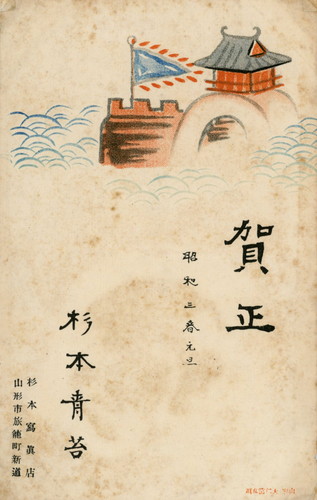 賀正
昭和三春元旦
杉本青苔
杉本寫眞店
山形市旅籠町新道